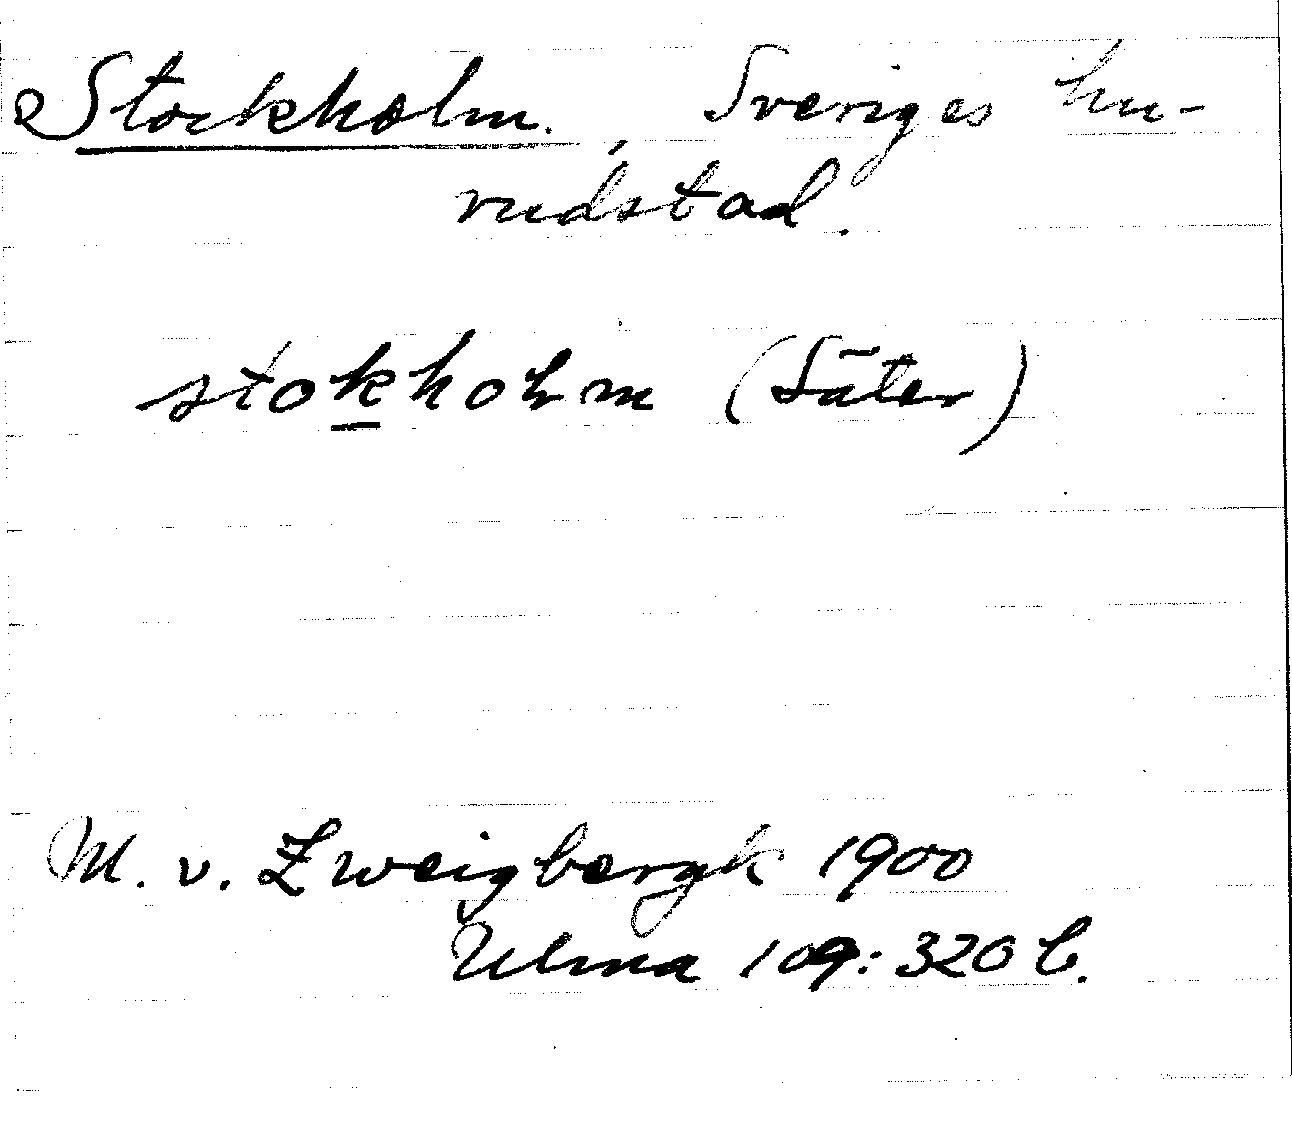 Stockholm, Sveriges hu-
vudstad.
stokholm (Säter)
M. v. Zweigbergk 1900
Ulma 109:320 b.